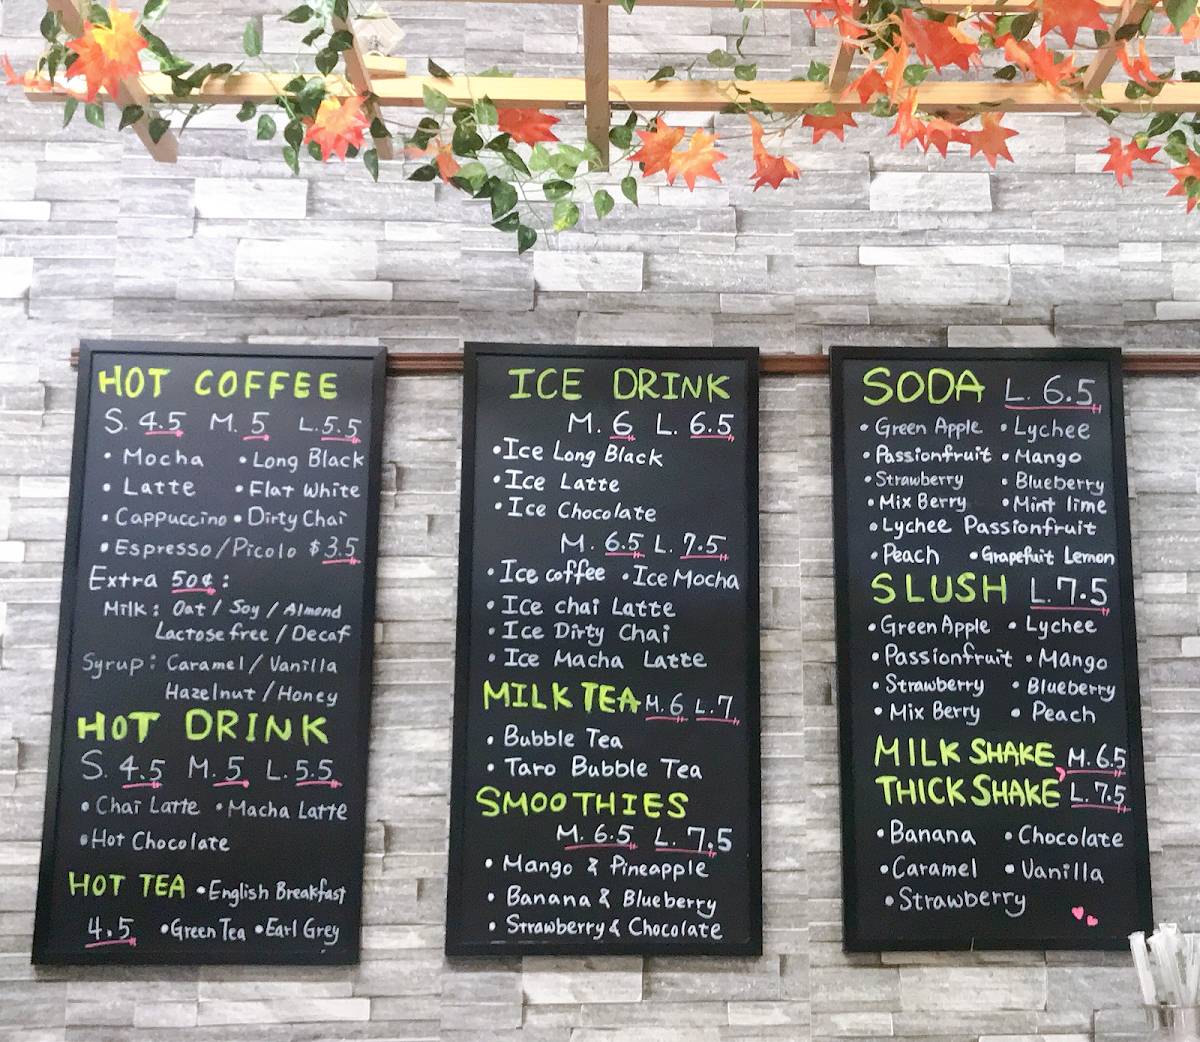 HOT COFFEE
S. 4.5 M. 5 L. 5.5
• Mocha • Long Black
• Latte • Flat White
• Cappuccino • Dirty Chai
• Espresso/Picolo $3.5
Extra 50¢:
Milk: Oat / Soy / Almond
Lactose free / Decaf
Syrup: Caramel / Vanilla
Hazelnut / Honey
HOT DRINK
S. 4.5 M. 5 L. 5.5
• Chai Latte • Macha Latte
• Hot Chocolate
HOT TEA • English Breakfast
4.5 • Green Tea • Earl Grey
ICE DRINK
M. 6 L. 6.5
• Ice Long Black
• Ice Latte
• Ice Chocolate
M. 6.5 L. 7.5
• Ice coffee • Ice Mocha
• Ice chai Latte
• Ice Dirty Chai
• Ice Macha Latte
MILK TEA M. 6 L. 7
• Bubble Tea
• Taro Bubble Tea
SMOOTHIES
M. 6.5 L. 7.5
• Mango & Pineapple
• Banana & Blueberry
• Strawberry & Chocolate
SODA L. 6.5
• Green Apple • Lychee
• Passionfruit • Mango
• Strawberry • Blueberry
• Mix Berry • Mint lime
• Lychee Passionfruit
• Peach • Grapefuit Lemon
SLUSH L. 7.5
• Green Apple • Lychee
• Passionfruit • Mango
• Strawberry • Blueberry
• Mix Berry • Peach
MILK SHAKE, M. 6.5
THICK SHAKE L. 7.5
• Banana • Chocolate
• Caramel • Vanilla
• Strawberry